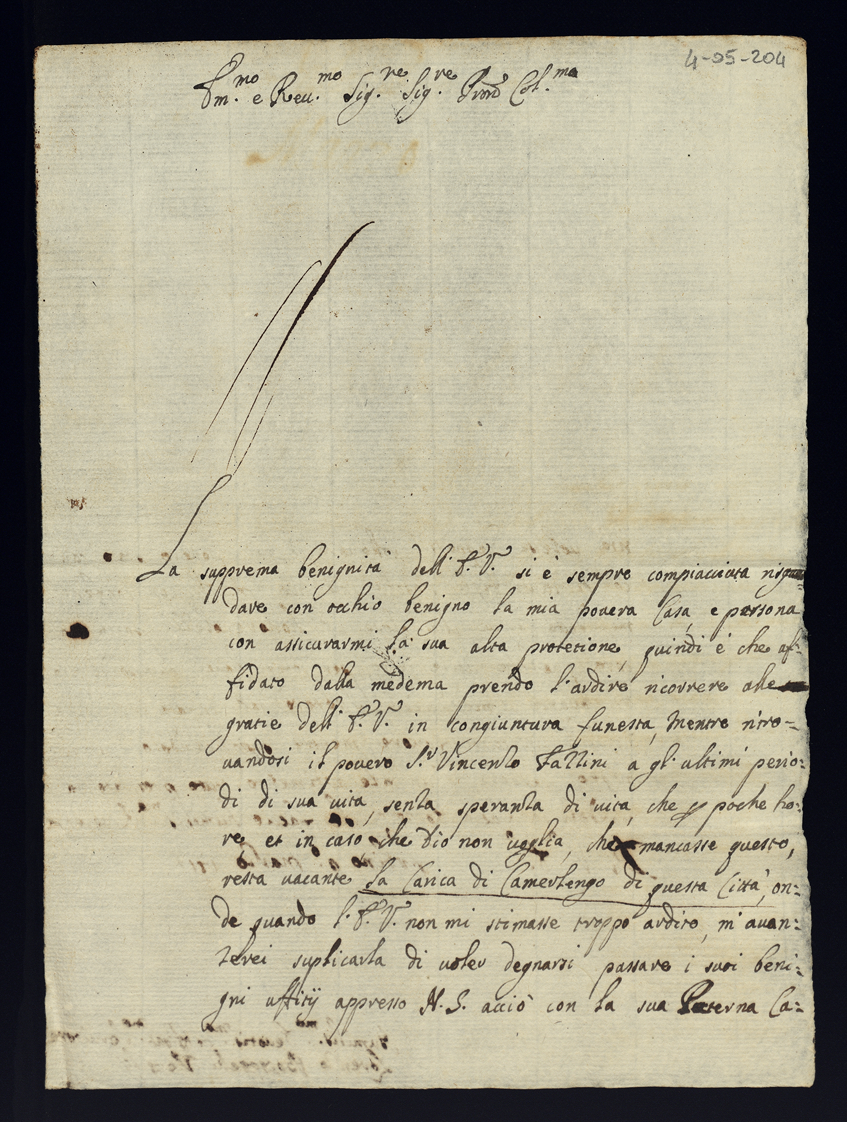 4-05-204
Em.mo e Reu.mo Sig.re Sig.re Prone Col.mo
La supprema benignità dell'E.V. si è sempre compiacciuta
dare con occhio benigno la mia pouera Casa, e persona
con assicurarmi la sua alta protetione, quindi è che af-
fidato dalla medema prendo l'ardire ricorrere alle
gratie dell'E.V. in congiuntura funesta, mentre ritro-
uandosi il pouero S.r Vincenzo Fallini a gl'ultimi perio:
di di sua uita, senza speranza di uita, che p poche ho:
re, et in caso che Dio non uoglia, che mancasse questo,
resta uacante la Carica di Camerlengo di questa Città, on:
de quando l'E.V. non mi stimasse troppo ardito, m'auan:
zerei suplicarla di uoler degnarsi passare i suoi beni:
gni uffitij appresso N.S. acciò con la sua Paterna Ca: